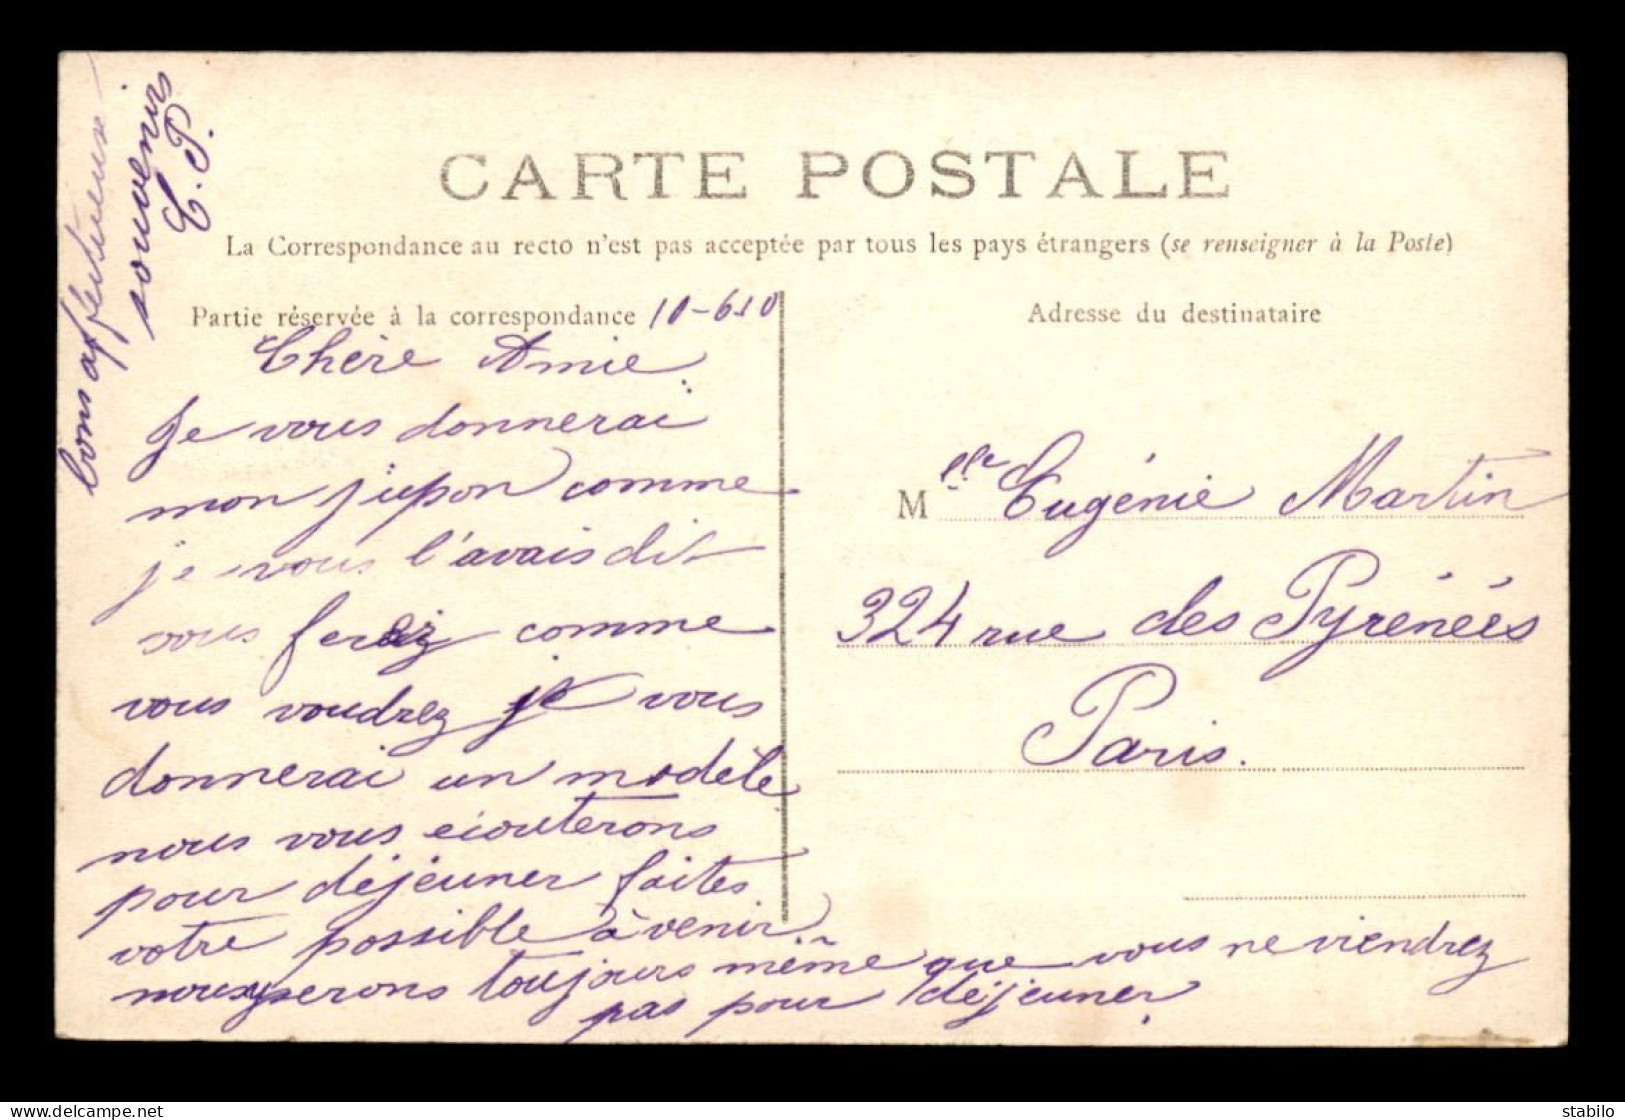 CARTE POSTALE
La Correspondance au recto n'est pas acceptée par tous les pays étrangers (se renseigner à la Poste)
Partie réservée à la correspondance 10-6 10
Chère Amie
Je vous donnerai
mon jupon comme
je vous l'avais dit
vous ferez comme
vous voudrez je vous
donnerai un modèle
nous vous ecouterons
pour déjeuner faites
votre possible à venir
nous y serons toujours même que vous ne viendrez
pas pour déjeuner.
bons affectueuse
souvenirs
E. P.
Adresse du destinataire
Melle Eugénie Martin
324 rue des Pyrénées
Paris.
delcampe.net
stabilo